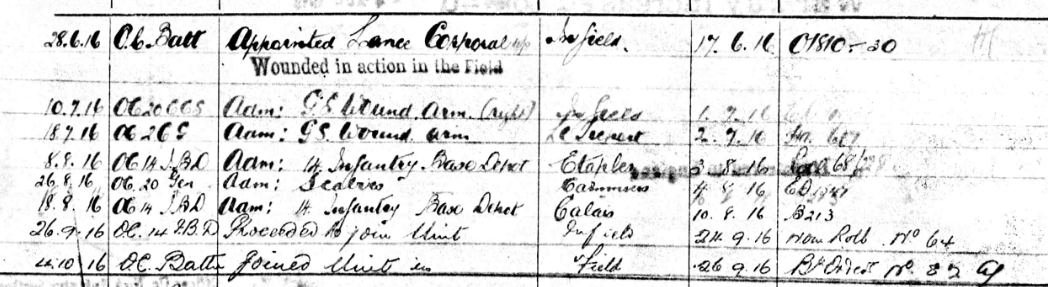 28.6.16 O.C. Batt Appointed Lance Corporal In field. 17.6.16 O1810-30
Wounded in action in the Field
10.7.16 OC 20 CCS Adm: GS Wound Arm (right) In field 1.7.16
18.7.16 OC 2 Adm: GS Wound arm Le Treport 2.7.16
8.8.16 OC 14 I.B.D Adm: 14 Infantry Base Depot Etaples 3.8.16
26.8.16 OC. 20 Gen Adm: Scabies Camiers 4.8.16
18.8.16 OC 14 I.B.D Adm: 14 Infantry Base Depot Calais 10.8.16 B213
26.9.16 OC. 14 I.B.D Proceeded to join Unit In field 24.9.16 Nom Roll No 64
4.10.16 OC. Battn Joined Unit in Field 26.9.16 No. 82